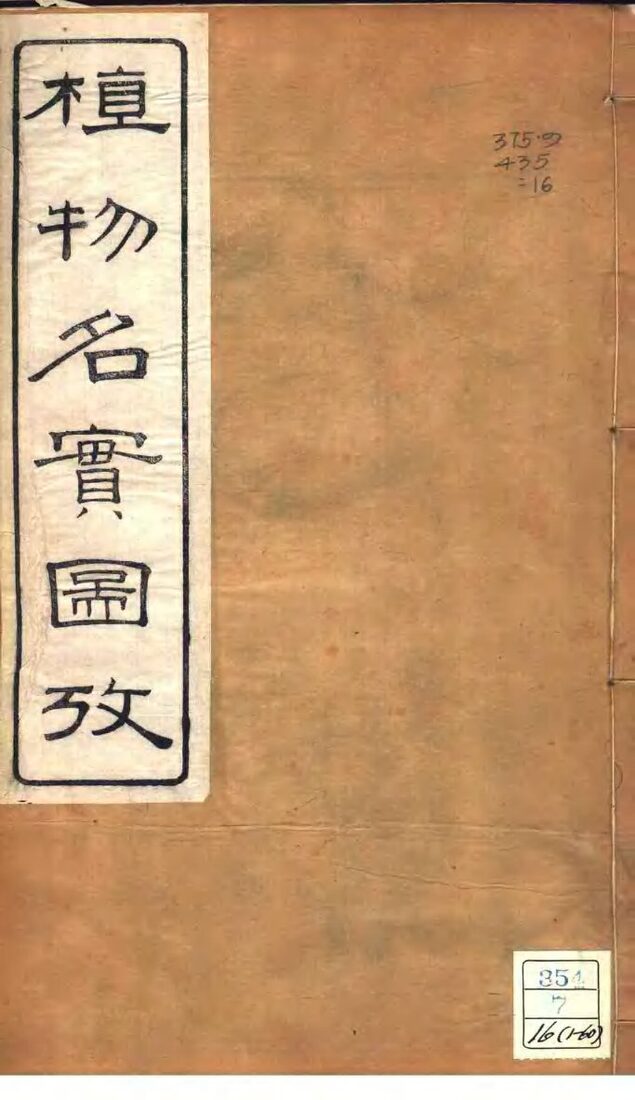 植物名實圖攷
375.9
435
=16
354
7
16(1-60)